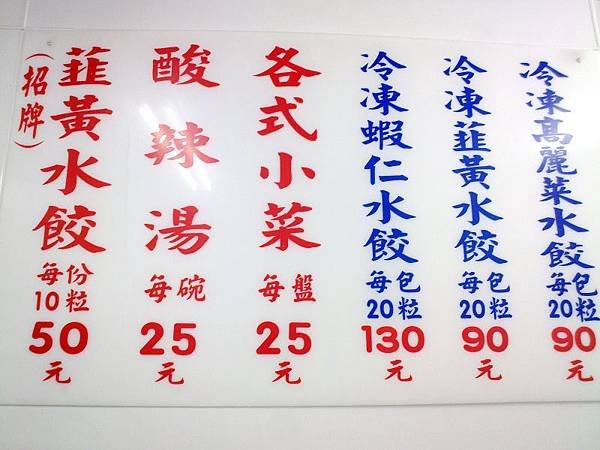 （招牌）
韮黃水餃
每份
10粒
50
元
酸辣湯
每碗
25
元
各式小菜
每盤
25
元
冷凍蝦仁水餃
每包
20粒
130
元
冷凍韮黃水餃
每包
20粒
90
元
冷凍高麗菜水餃
每包
20粒
90
元